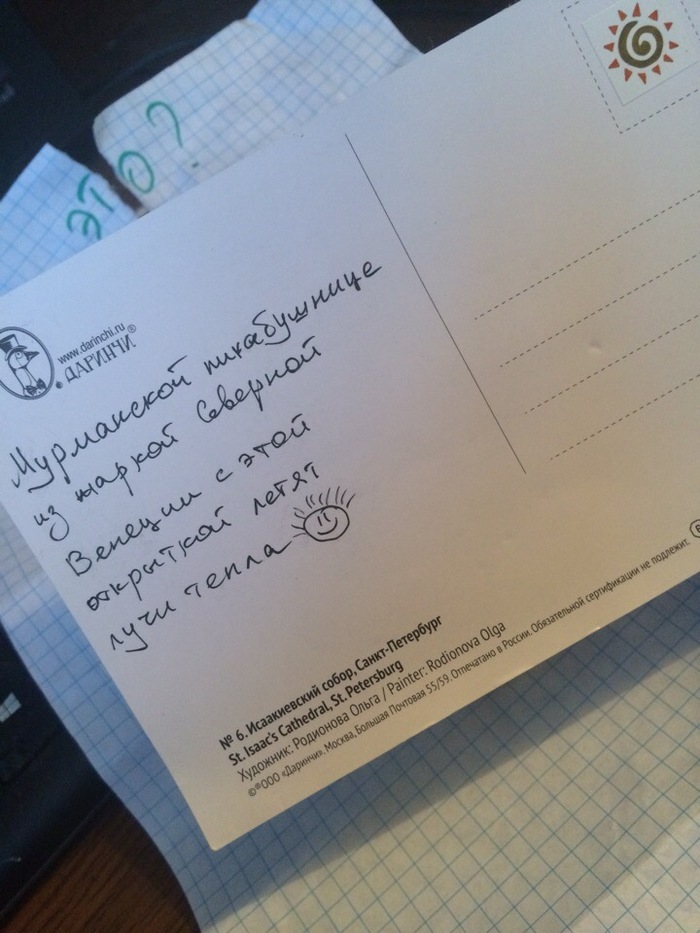 ЭТО?
www.darinchi.ru
ДАРИНЧИ®
Мурманской пикабушнице
из жаркой Северной
Венеции с этой
открыткой летят
лучи тепла
№ 6. Исаакиевский собор, Санкт-Петербург
St. Isaac's Cathedral, St. Petersburg
Художник: Родионова Ольга / Painter: Rodionova Olga
©®ООО «Даринчи». Москва, Большая Почтовая 55/59. Отпечатано в России. Обязательной сертификации не подлежит.